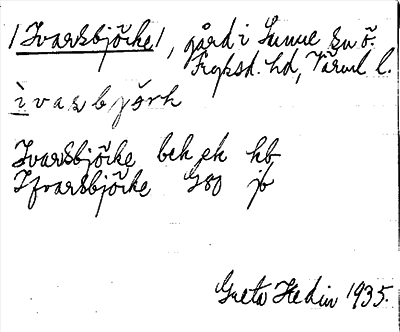 /Ivarsbjörke/, gård i Sunne sn ö.
Fryksd. hd, Värml l.
ìvasbjörk
Ivarsbjörke bek ek hb
Ifvarsbjörke GSO jb
Greta Hedin 1935.